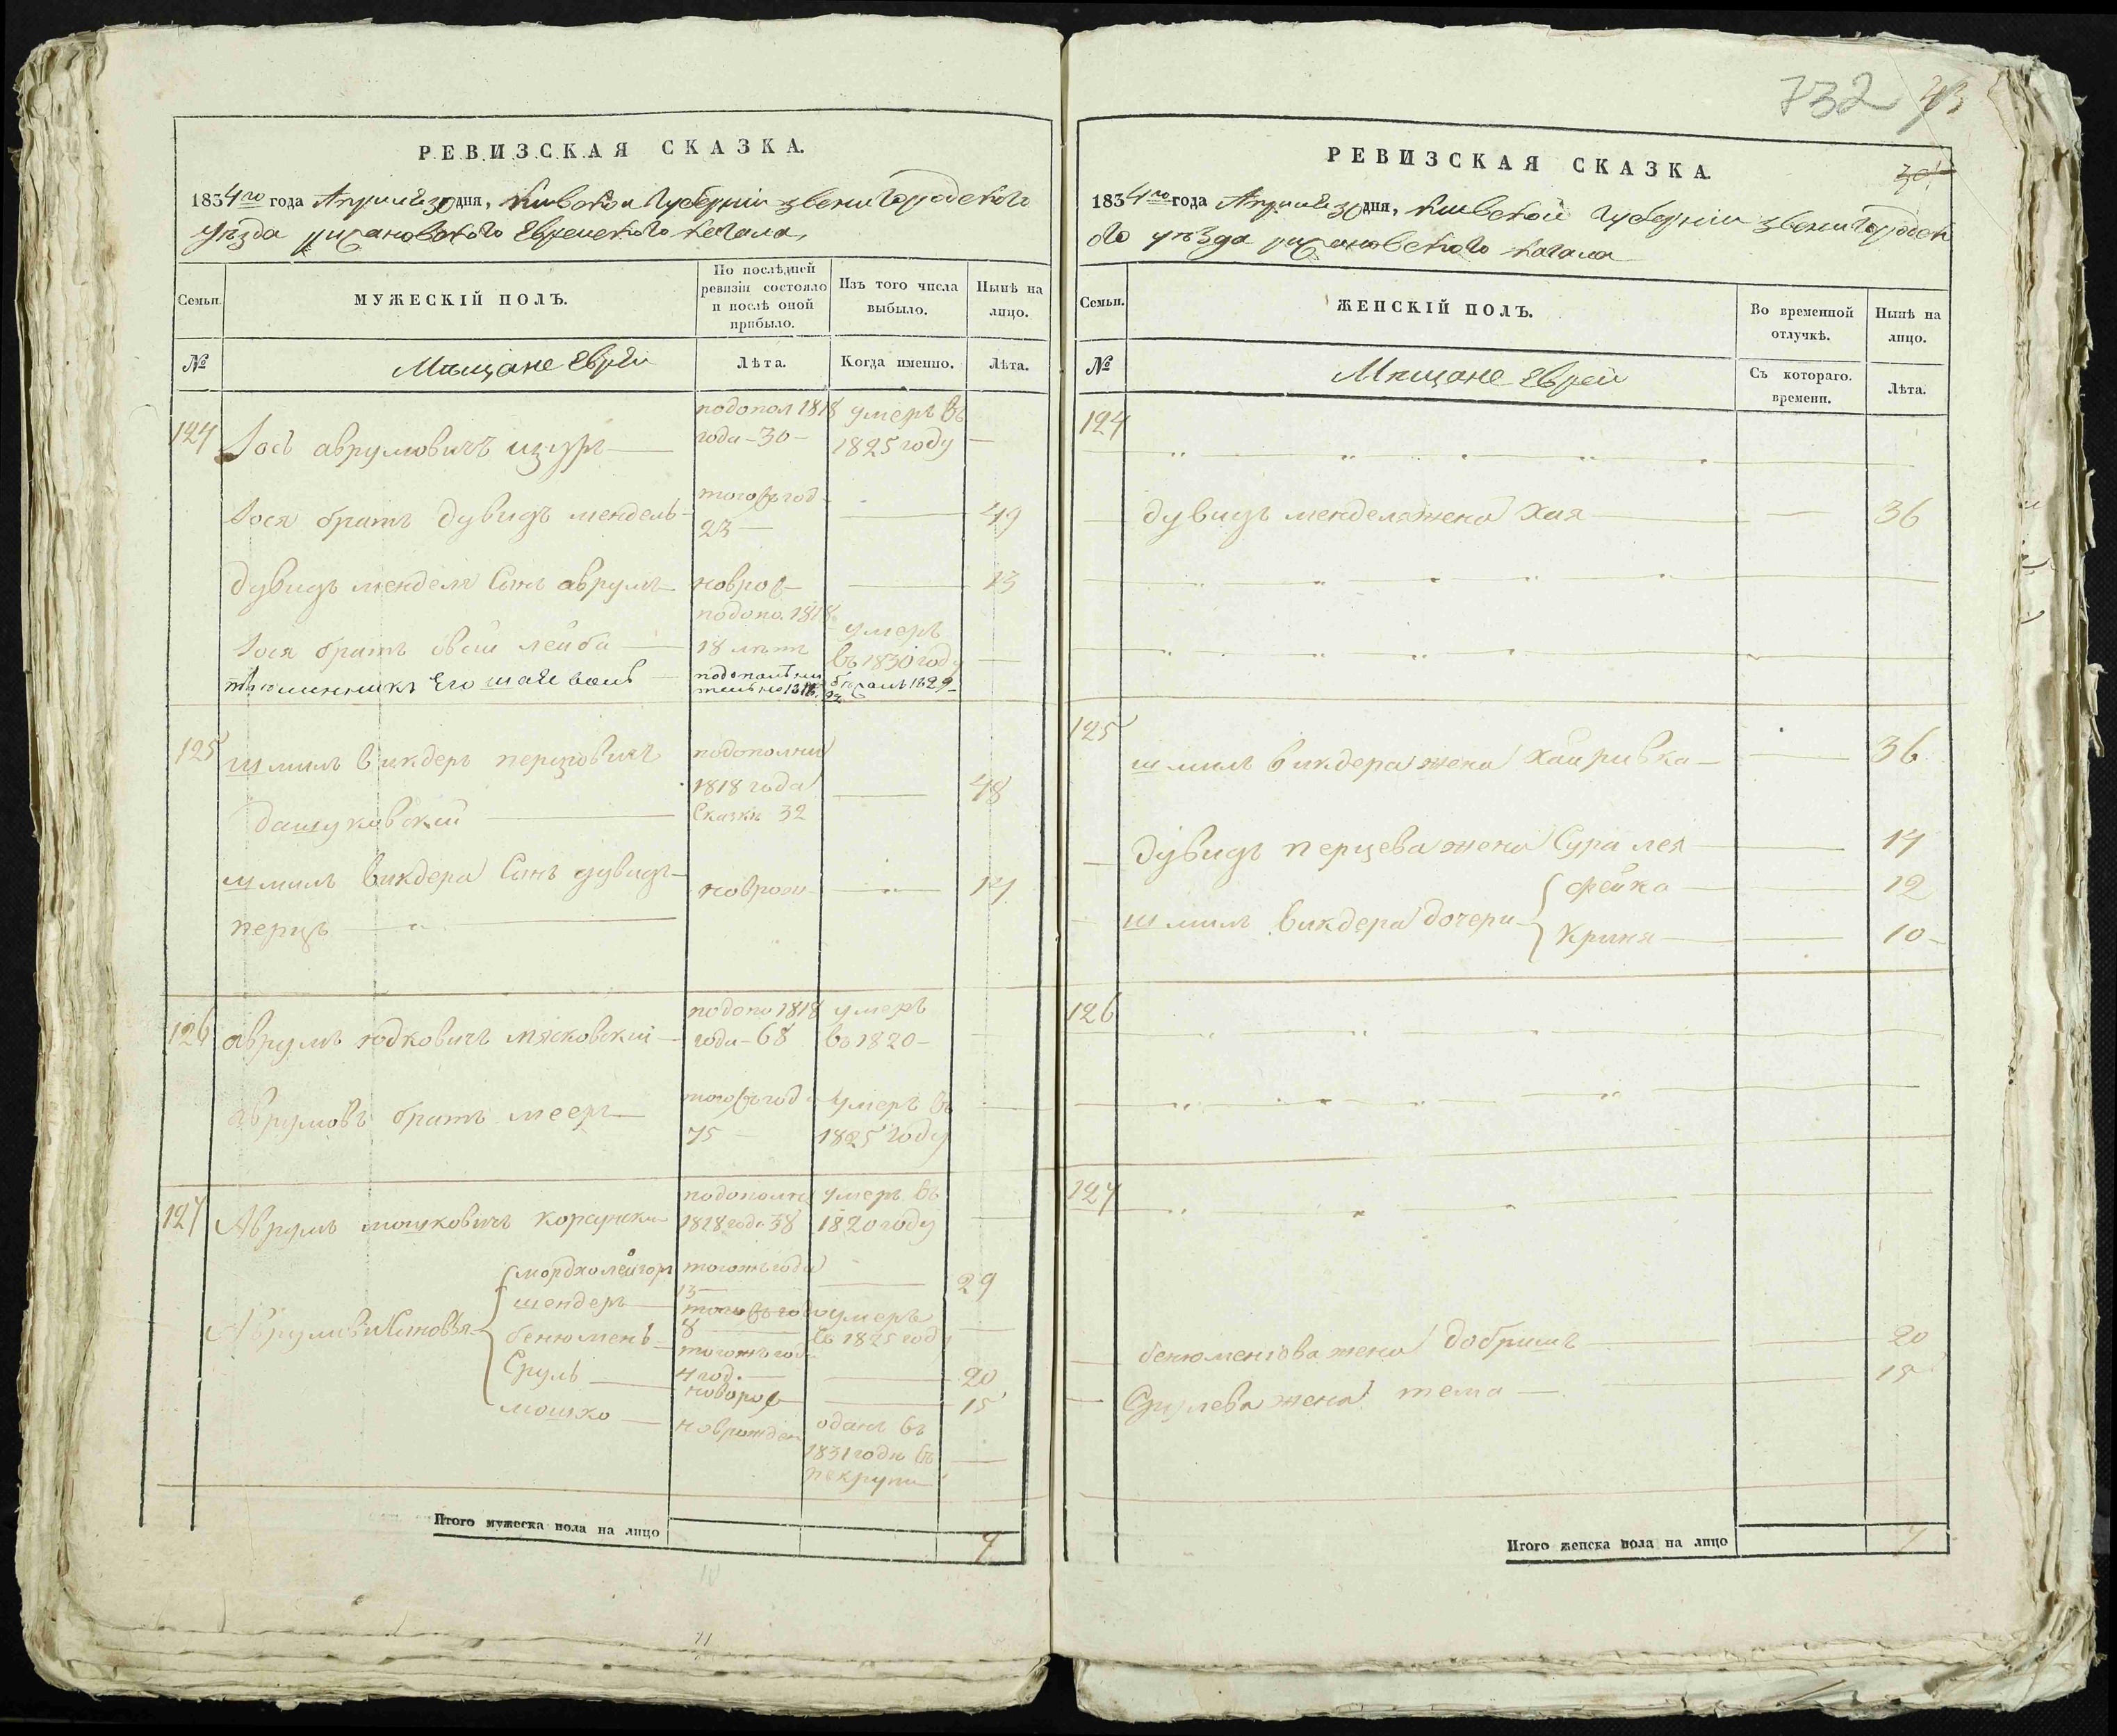 732
РЕВИЗСКАЯ СКАЗКА.
1834го года Апреля 30 дня, Киевской Губернии Звенигородского
уезда рижановского Еврейского Кагала,
Семьи.
МУЖЕСКІЙ ПОЛЪ.
По послѣдней ревизіи состояло и послѣ оной прибыло.
Изъ того числа выбыло.
Нынѣ на лицо.
№
Мещане Евреи
Лѣта.
Когда именно.
Лѣта.
124
Іось аврумовичъ
подопол 1818 года - 30 -
умеръ въ 1825 году
—
Іося братъ дувидъ мендель
тогожъ год 23 —
—
49
дувидъ менделя Сынъ аврумъ
новрож
—
13
Іося братъ овсій лейба
подопо. 1818. 18 летъ
умеръ въ 1830 году
—
Его
1829
125
шмиль викдеръ перцовичъ
дашуковский
подополни 1818 года Сказки 32
—
48
шмиль викдера Сынъ дувидъ
перцъ
новрож
—
17
126
аврумъ юдковичъ мясковский
подопо 1818 года - 68
умеръ во 1820 -
аврумовъ братъ меер
тогожъ года 75 —
умеръ въ 1825 году
127
Аврумъ мошковичъ корсунски
подополни 1818 года 38
умеръ въ 1820 году
Аврумови Сыновья
мордхолейзор
тогожъ года 13 —
—
29
шендеръ
тогожъ году 8
умеръ въ 1825 году
бенюмень
тогожъ года 4 год.
—
20
Сруль
новорож
—
15
мошко
новрожден
одань въ 1831 годе въ рекруты
—
Итого мужеска пола на лицо
7
11
РЕВИЗСКАЯ СКАЗКА.
1834го года Апреля 30 дня, Киевской Губернии Звенигородск
ого уезда рижановского Кагала
Семьи.
ЖЕНСКІЙ ПОЛЪ.
Во временной отлучкѣ.
Нынѣ на лицо.
№
Мещане Евреи
Съ котораго. времени.
Лѣта.
124
дувидъ менделя жена Хая
—
36
125
шмиль викдера жена хайривка
—
36
дувидъ перцева жена Сура лея
—
17
шмиль викдера дочери
фейга
—
12
Криня
—
10
126
127
бенюменова жена добришъ
—
20
Срулева жена тема
—
15
Итого женска пола на лицо
7